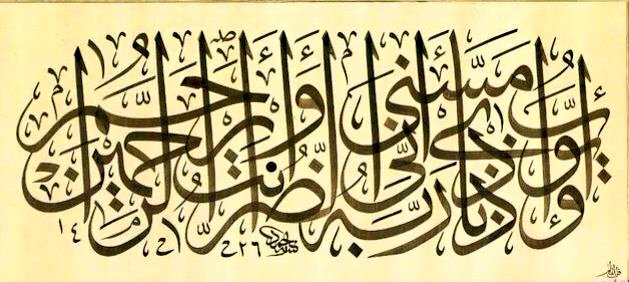 وأيوب إذ نادى ربه أني مسني الضر وأنت أرحم الراحمين